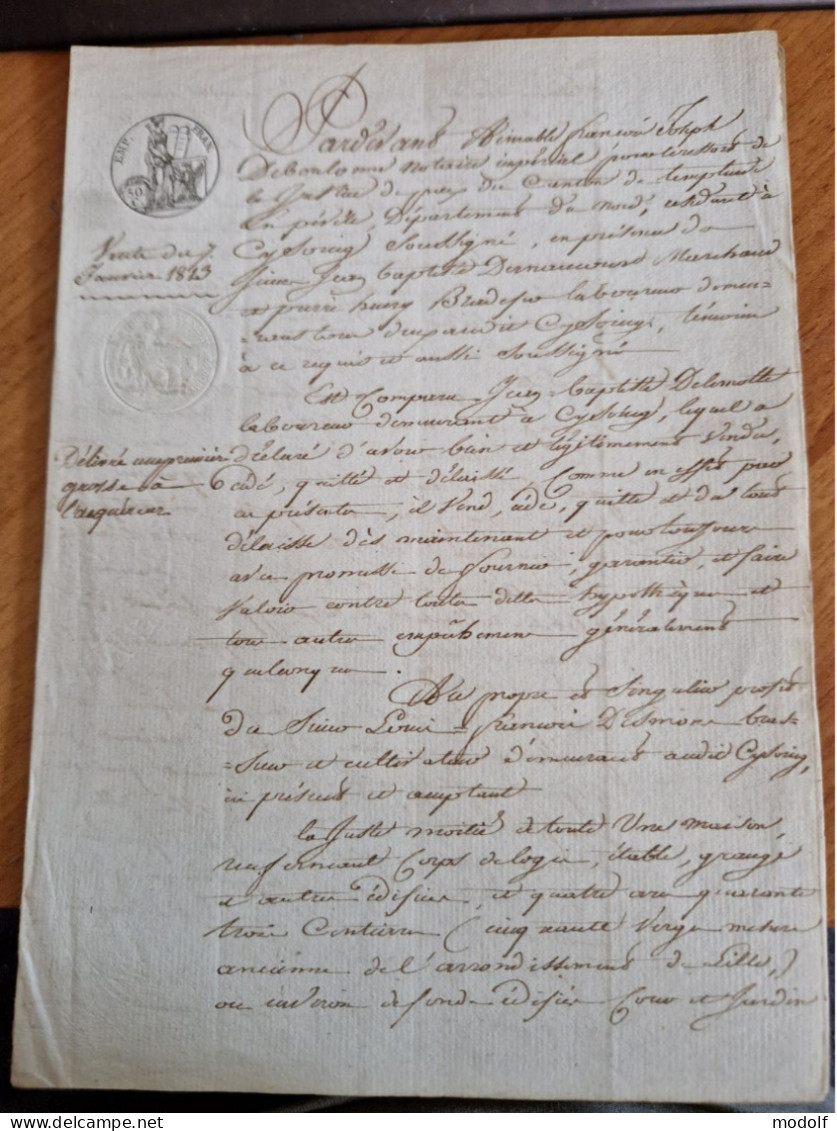 EMP. FRAN.
50
Vente du 7
Janvier 1813
Délivré une première
grosse à
l'acquéreur
Pardevant Aimable François Joseph
Deboulonne Notaire impérial pour le ressort de
la Justice de paix du Canton de templeuve
En pévèle, Département du Nord, résidant à
Cysoing Soussigné, en présence de
Sieur Jean baptiste Marchand
et pierre henry laboureur demeu-
-rant tous deux audit Cysoing, témoins
à ce requis et aussi Soussignés
Est Comparu Jean baptiste Delemotte
laboureur demeurant à Cysoing, lequel a
déclaré d'avoir bien et légitimement Vendu,
cédé, quitté et délaissé, Comme en effet par
ces présentes, il vend, cède, quitte et du tout
délaisse dès maintenant et pour toujours
avec promesse de fournir, garantir, et faire
Valoir contre toutes dettes hypothèques et
tous autres empêchemens généralement
quelconques.
Au propre et Singulier profit
du Sieur Louis françois Desmons bras-
-seur et cultivateur demeurant audit Cysoing,
ici présent et acceptant
la Juste moitié de toute Une maison,
renfermant Corps de logis, étable, grange
et autres édifices, et quatre ares quarante
trois Centiares (cinquante Verges mesure
ancienne de l'arrondissement de Lille,)
ou environ de fonds édifiés Cour et Jardin
modolf